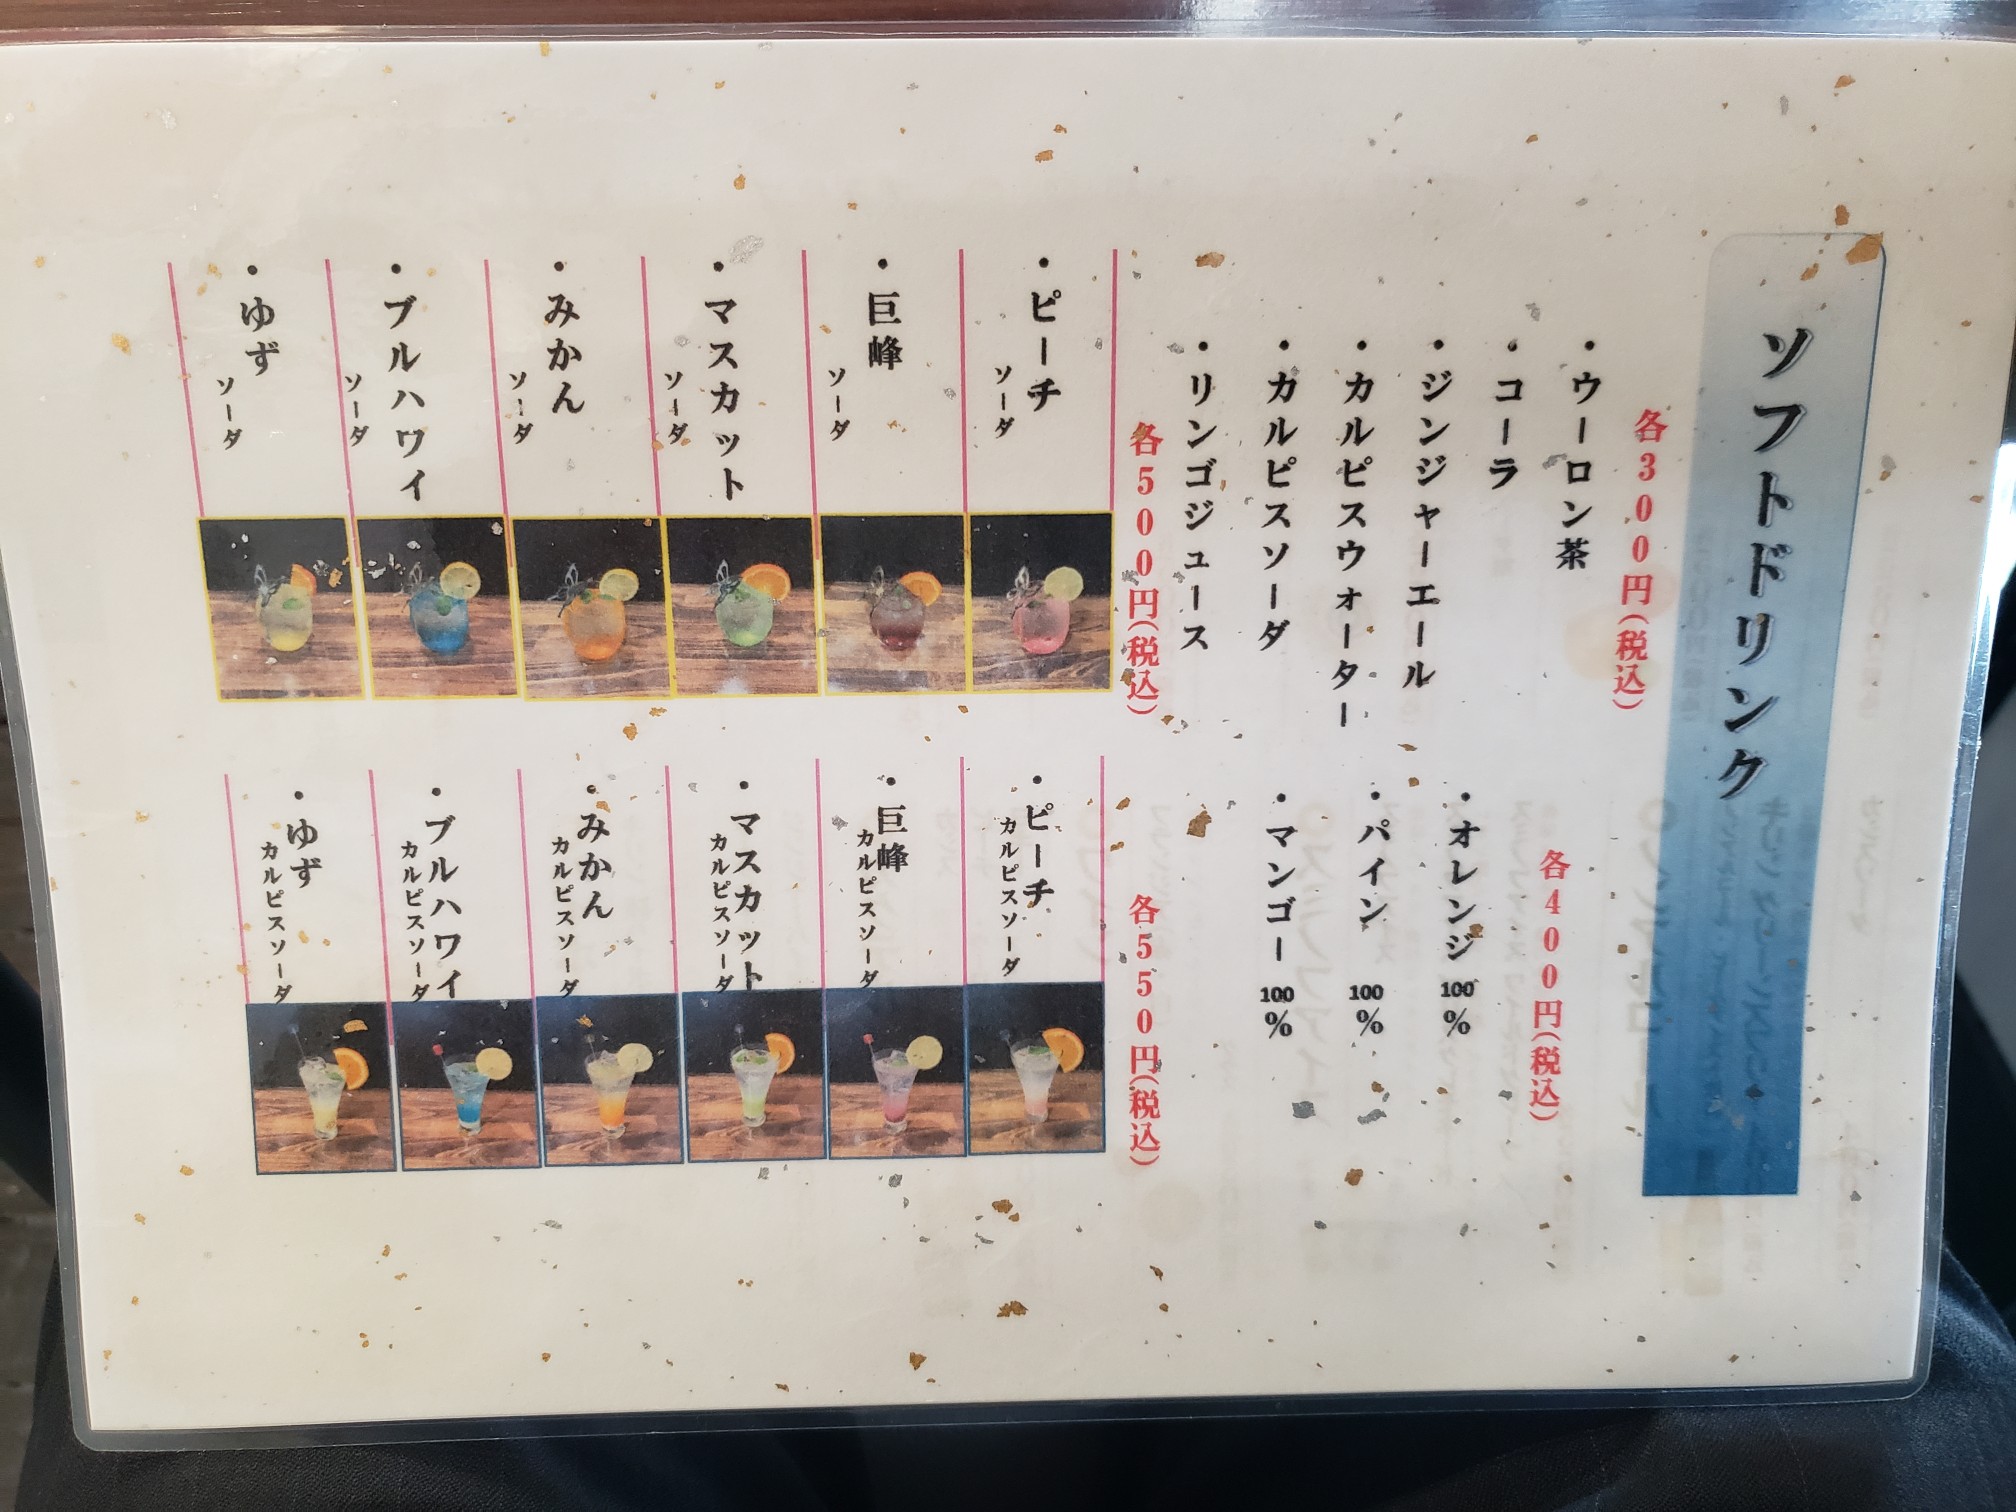 ソフトドリンク
各300円(税込)
・ウーロン茶
・コーラ
・ジンジャーエール
・カルピスウォーター
・カルピスソーダ
・リンゴジュース
各400円(税込)
・オレンジ 100%
・パイン 100%
・マンゴー 100%
各500円(税込)
・ピーチ
ソーダ
・巨峰
ソーダ
・マスカット
ソーダ
・みかん
ソーダ
・ブルハワイ
ソーダ
・ゆず
ソーダ
各550円(税込)
・ピーチ
カルピスソーダ
・巨峰
カルピスソーダ
・マスカット
カルピスソーダ
・みかん
カルピスソーダ
・ブルハワイ
カルピスソーダ
・ゆず
カルピスソーダ